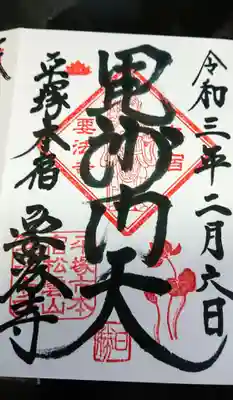 令和三年二月六日
毘沙門天
平塚本宿
要法寺
要法寺